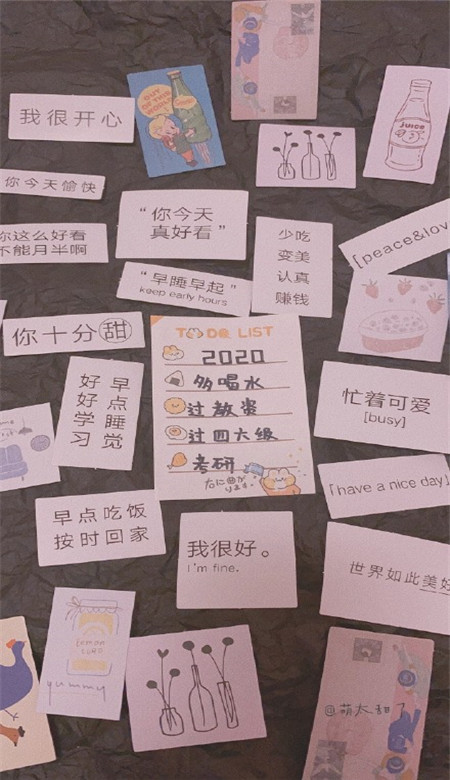 OUT
OF THIS
WORLD!
我很开心
JUICE
你今天愉快
"你今天
真好看"
少吃
变美
认真
赚钱
你这么好看
不能月半啊
[peace&lov
"早睡早起"
keep early hours
你十分甜
TO DO LIST
2020
多喝水
过教资
过四六级
考研
好好学习
早点睡觉
忙着可爱
[busy]
「have a nice day」
早点吃饭
按时回家
我很好。
I'm fine.
世界如此美好
yummy
@萌太甜了